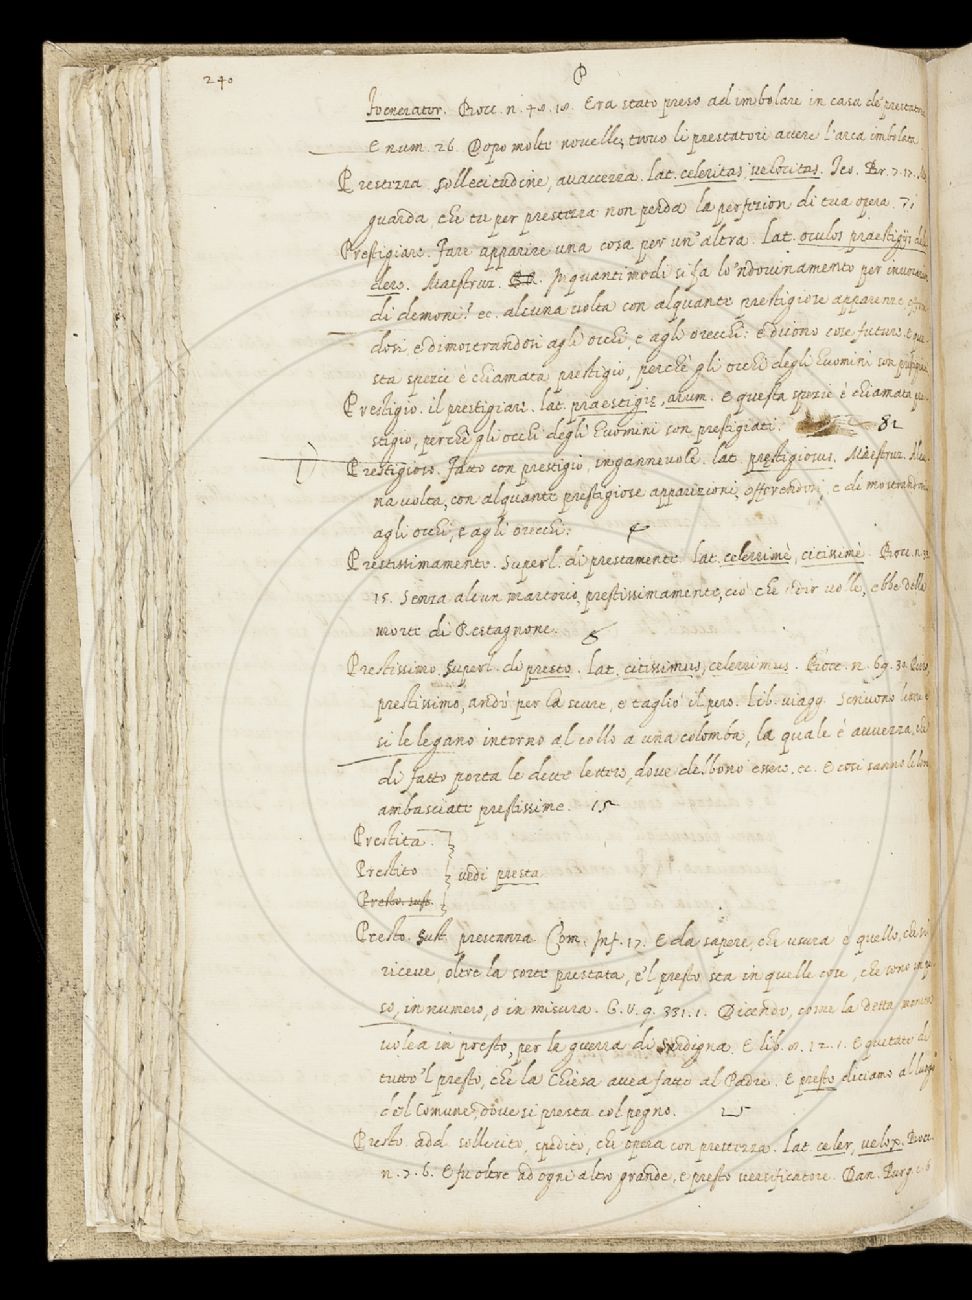 240
P
foenerator. Bocc. n. 48. 18. Era stato preso ad imbolare in casa de prestatori
E num. 26. Dopo molte novelle, trovo li prestatori avere l'arca imbolata
Prestezza. sollecitudine, avaccezza. lat. celeritas, velocitas. Tes. Br. 7. 17.
guarda, che tu per prestezza non perda la perfezion di tua opera. 7i
Prestigiare. Fare apparire una cosa per un'altra. lat. oculos praestigijs
dere. Maestruz. In quanti modi si fa lo 'ndovinamento per
di demoni? ec. alcuna volta con alquante prestigiose apparenze
dosi, e dimostrandosi agli occhi, e agli orecchi: e dicono cose future. E que
sta spezie è chiamata prestigio, perchè gli occhi degli huomini son
Prestigio. il prestigiare. lat. praestigię, arum. E questa spezie è chiamata pre
stigio, perchè gli occhi degli huomini son prestigiati. 82
Prestigioso. Fatto con prestigio, ingannevole. lat. pręstigiosus. Maestruz. Alcu
na volta, con alquante prestigiose apparizioni, offerendosi, e dimostrandosi
agli occhi, e agli orecchi.
Prestissimamente. Superl. di prestamente. lat. celerrimè, citissimè. Bocc. n.
15. Senza alcun martorio, prestissimamente, ciò che udir volle, ebbe della
morte di Restagnone. 8
Prestissimo. Superl. di presto. lat. citissimus, celerrimus. Bocc. n. 69. 30.
prestissimo, andò per la scure, e tagliò il pero. Lib. viagg. Scrivono lettere e
si le legano intorno al collo a una colomba, la quale è avvezza, che
di fatto porta le dette lettere, dove debbono essere. ec. E così fanno le loro
ambasciate prestissime. 15
Prestita.
Prestito } vedi presta
Presto. sust.
Presto. Sust. prestanza. Com. Inf. 17. E da sapere, che usura è quello, che si
riceve, oltre la sorte prestata, e 'l presto sta in quelle cose, che sono in pe
so, in numero, o in misura. G. V. 9. 331. 1. Dicendo, come la detta moneta
volea in presto, per la guerra di Sardigna. E lib. 8. 12. 1. E quetato di
tutto 'l presto, che la Chiesa avea fatto al Padre. E presto diciamo al luogo
del Comune, dove si presta col pegno.
Presto. add. sollecito, spedito, che opera con prestezza. lat. celer, velox. Bocc.
n. 7. 6. E fu oltre ad ogni altro grande, e presto versificatore. Dan. Purg.